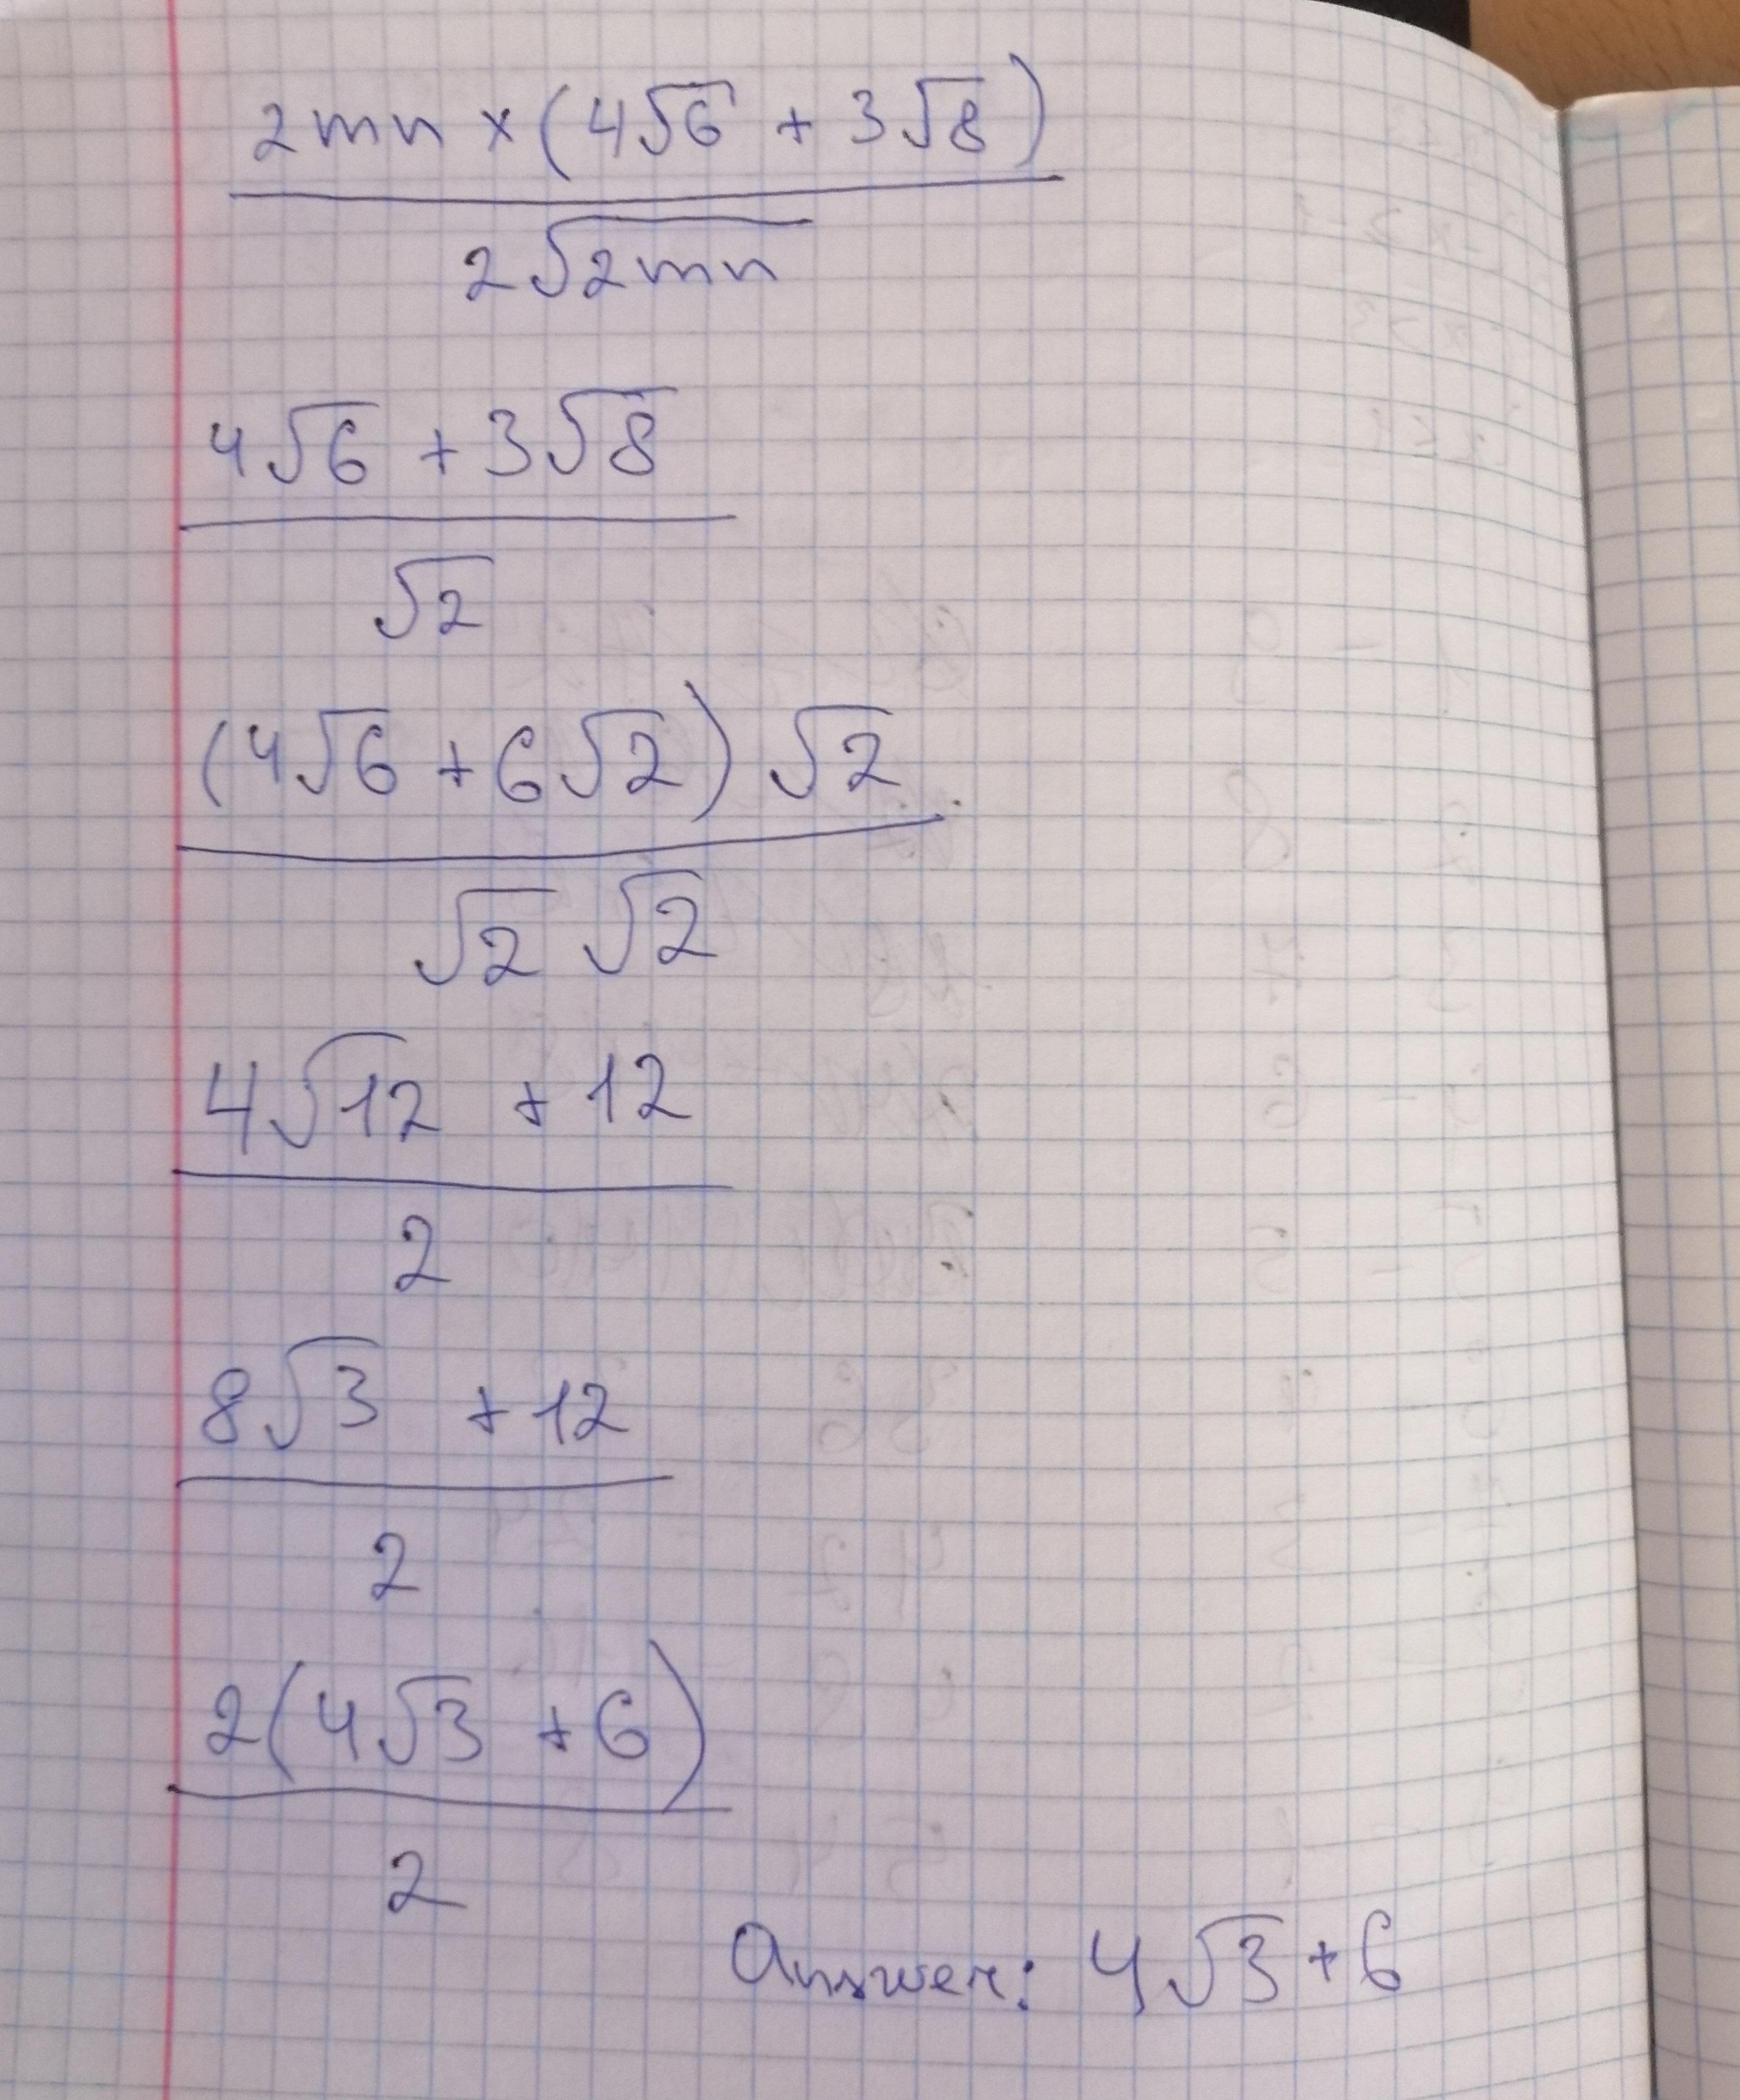 2mn × (4√6 + 3√8)
2√2mn
4√6 + 3√8
√2
(4√6 + 6√2) √2
√2 √2
4√12 + 12
2
8√3 + 12
2
2(4√3 + 6)
2
Answer: 4√3 + 6